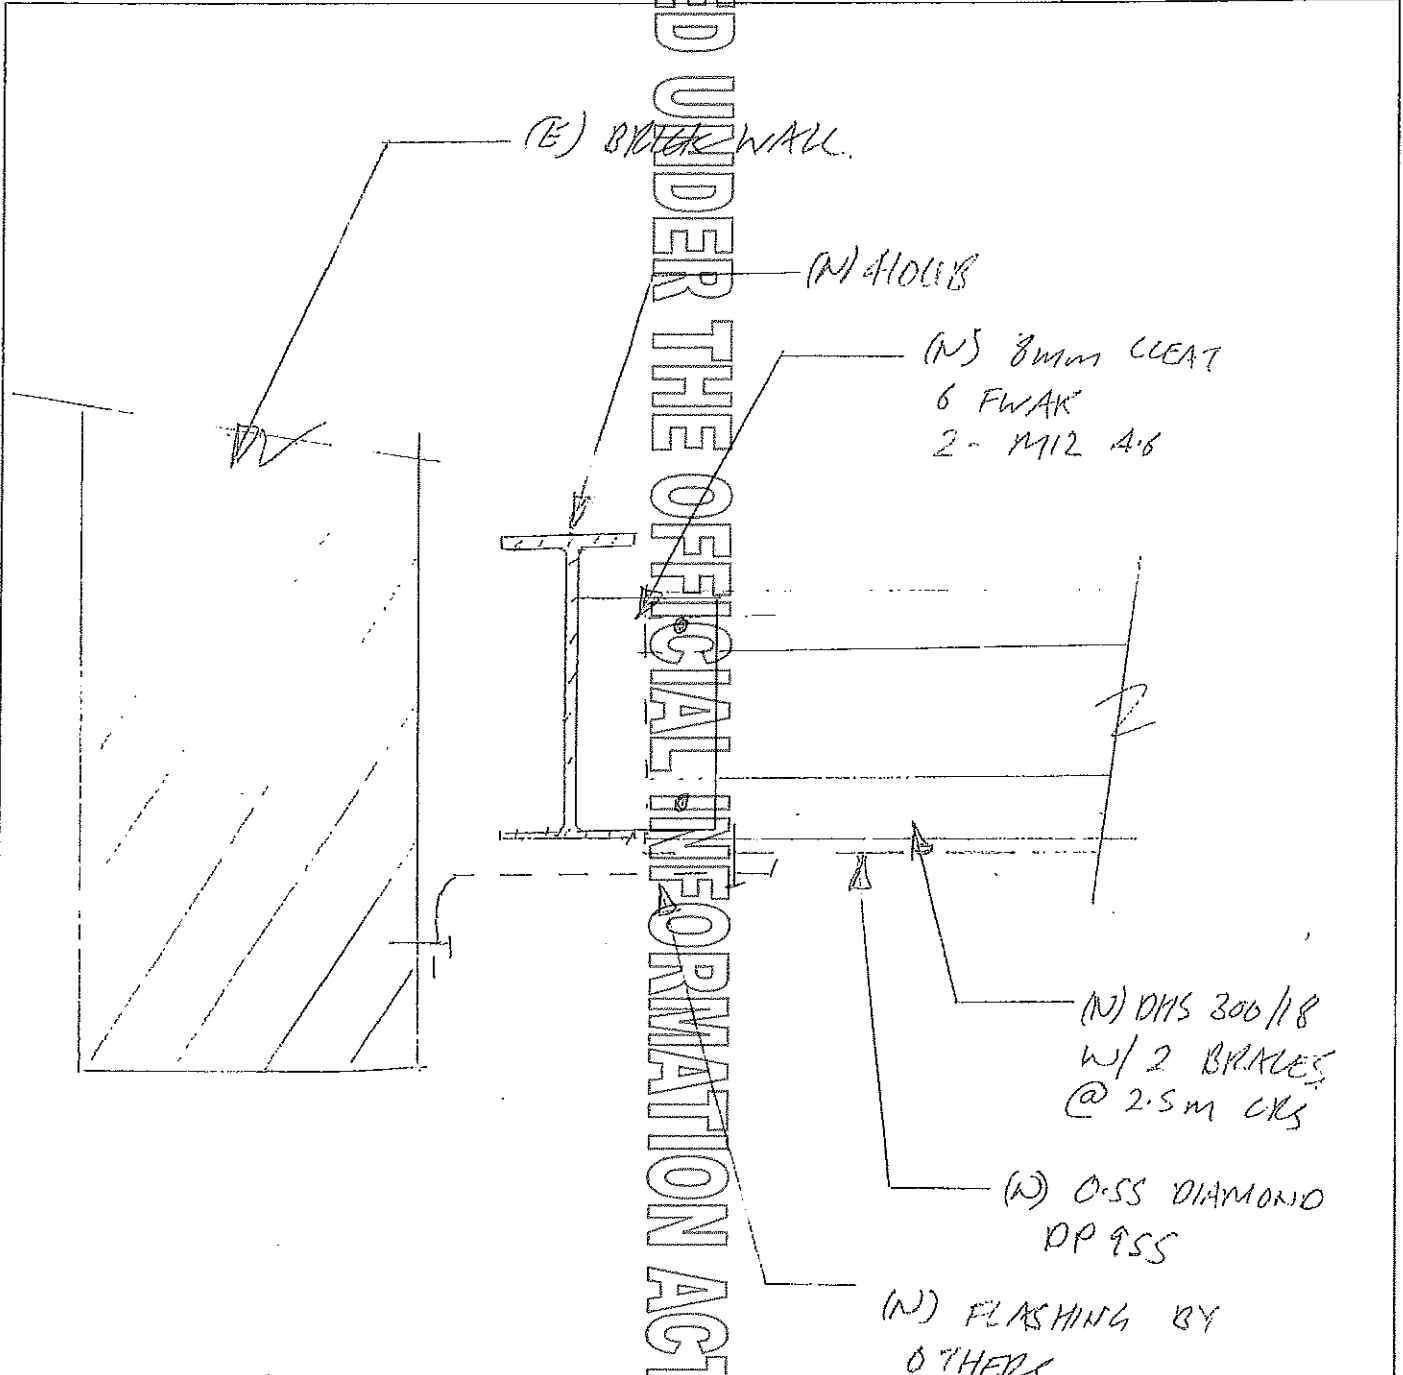 (E) BRICK WALL.
(N) 410UB
(N) 8mm CLEAT
6 FWAR
2 - M12 4.6
(N) DHS 300/18
W/ 2 BRACES
@ 2.5m CRS
(N) 0.55 DIAMOND
DP 955
(N) FLASHING BY
OTHERS
ED UNDER THE OFFICIAL INFORMATION ACT